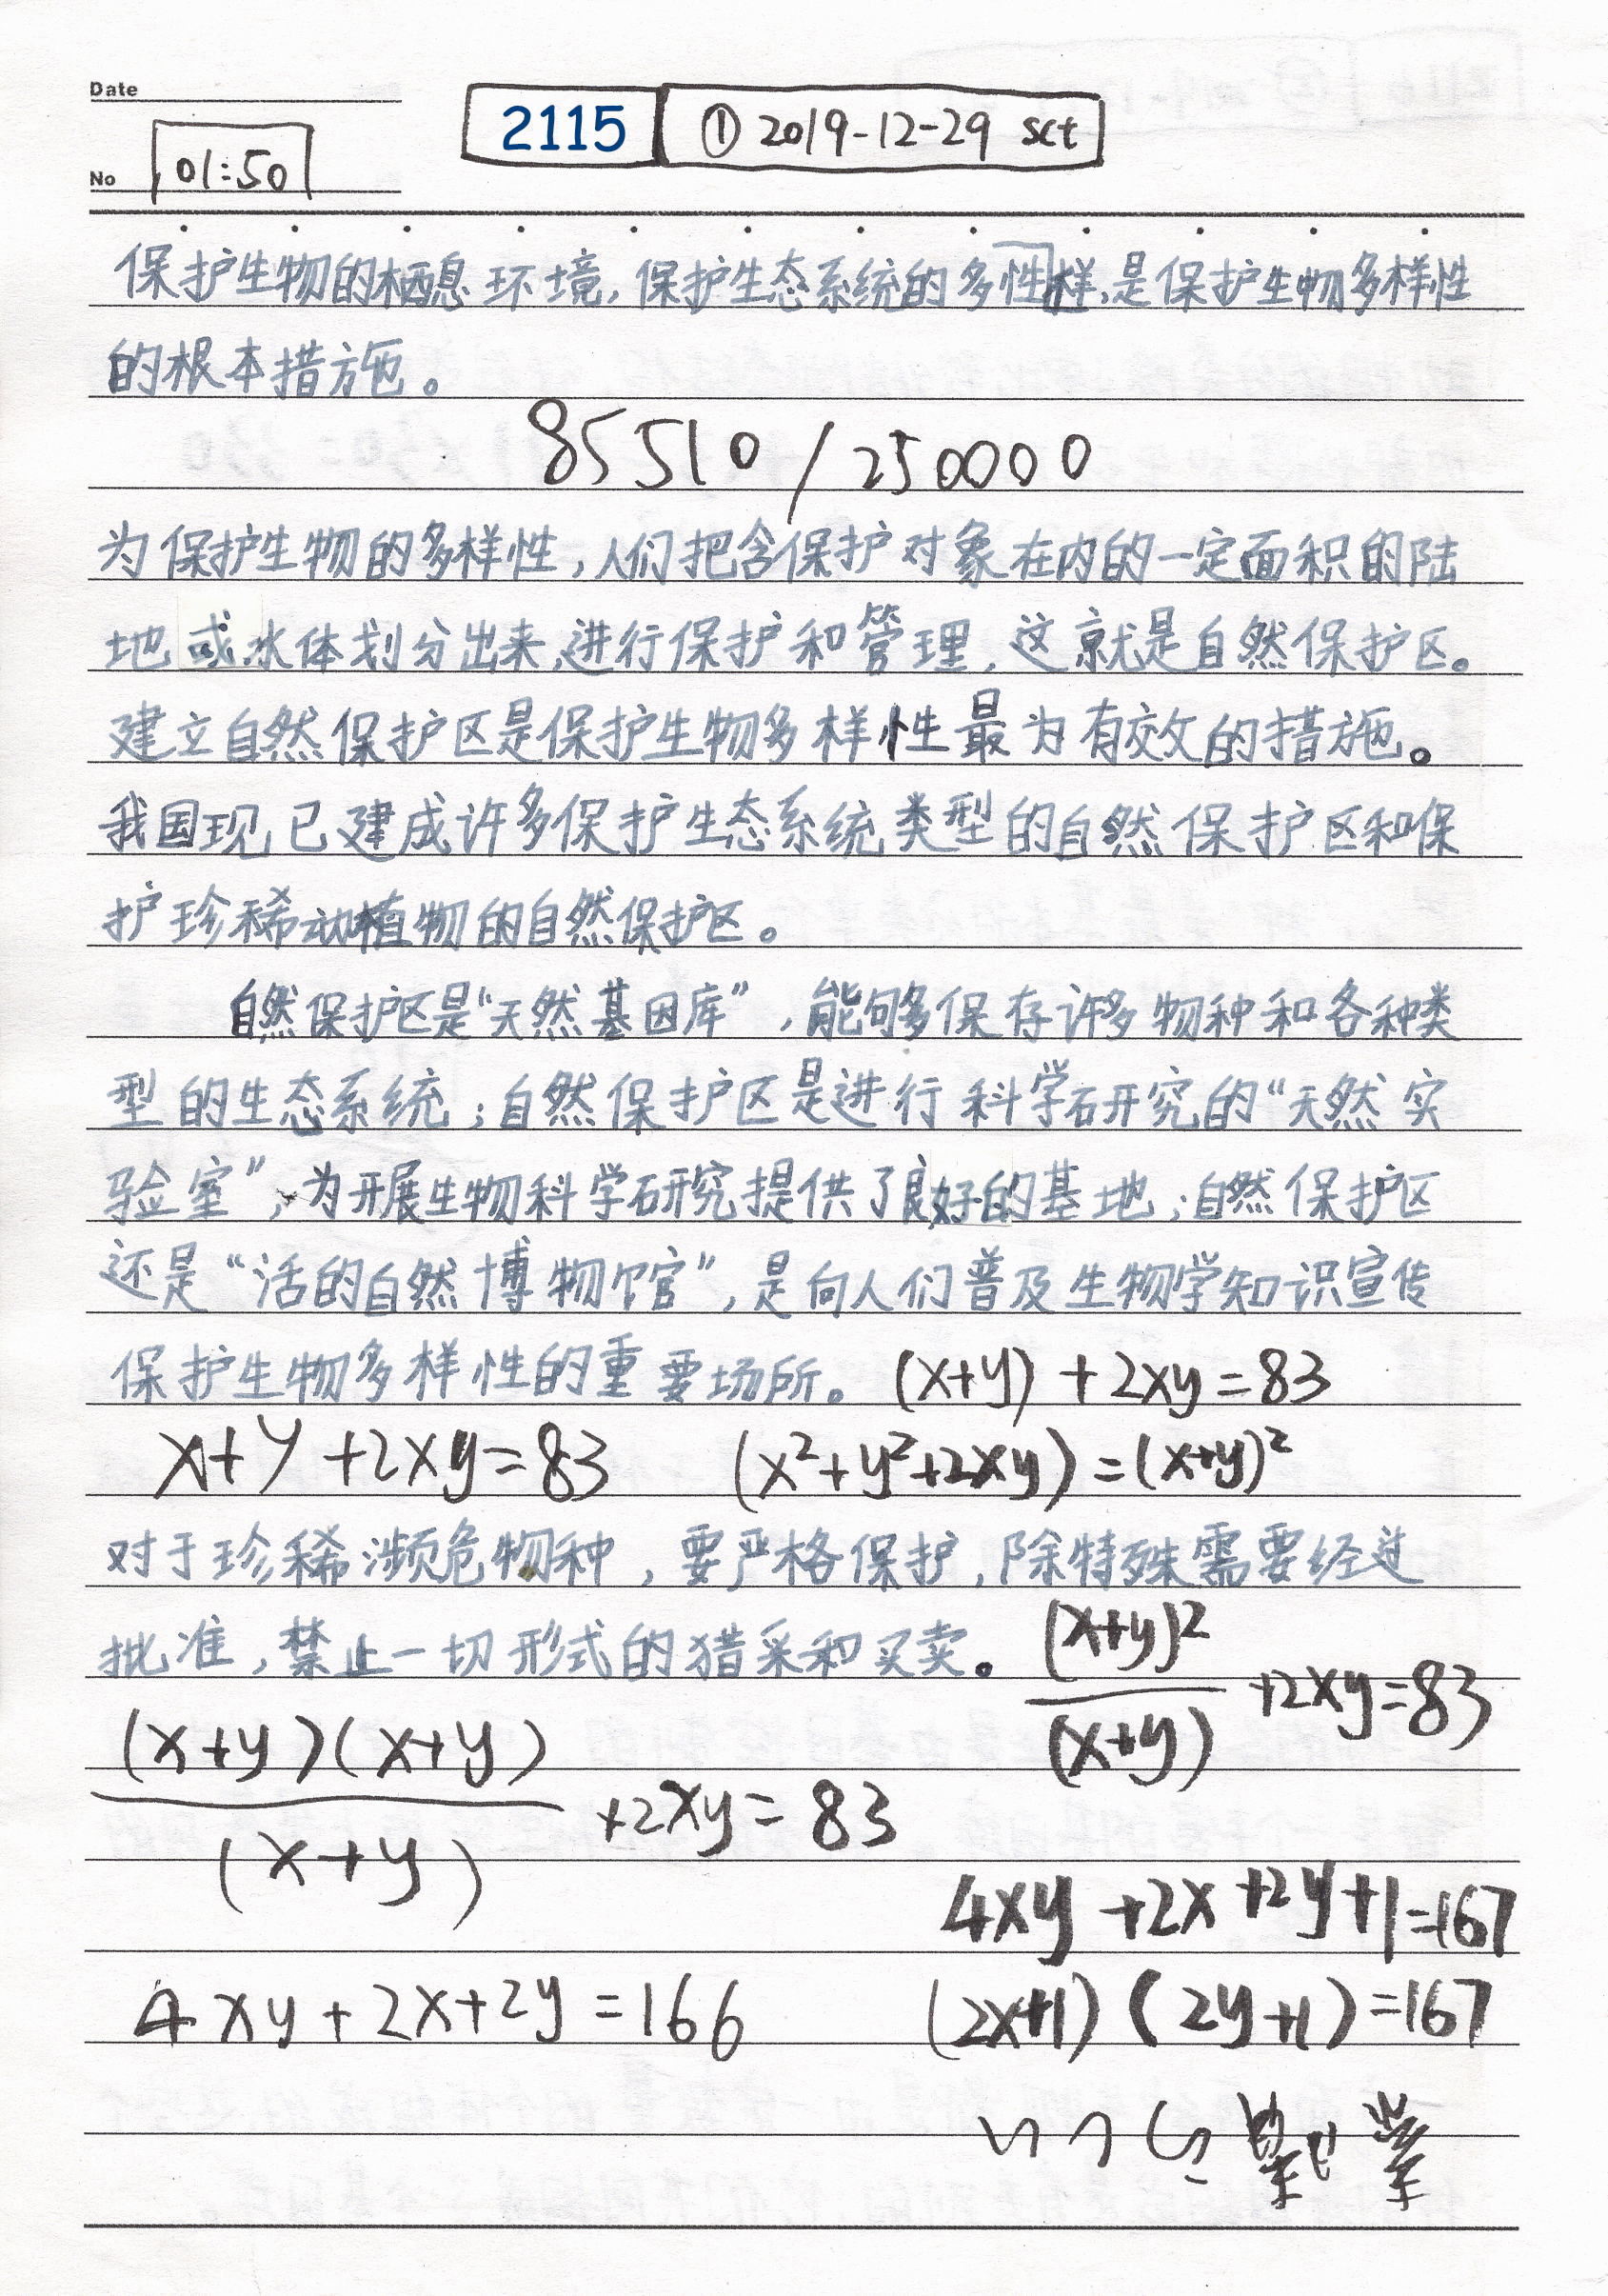 Date
2115 ① 2019-12-29 sct
No 01:50
保护生物的栖息环境,保护生态系统的多性样,是保护生物多样性
的根本措施。
85510/250000
为保护生物的多样性,人们把含保护对象在内的一定面积的陆
地或水体划分出来,进行保护和管理,这就是自然保护区。
建立自然保护区是保护生物多样性最为有效的措施。
我国现已建成许多保护生态系统类型的自然保护区和保
护珍稀动植物的自然保护区。
自然保护区是“天然基因库”,能够保存许多物种和各种类
型的生态系统;自然保护区是进行科学研究的“天然实
验室”,为开展生物科学研究提供了良好的基地;自然保护区
还是“活的自然博物馆”,是向人们普及生物学知识宣传
保护生物多样性的重要场所。 (x+y)+2xy=83
x+y+2xy=83 (x²+y²+2xy)=(x+y)²
对于珍稀濒危物种,要严格保护,除特殊需要经过
批准,禁止一切形式的猎采和买卖。 (x+y)²/(x+y) +2xy=83
(x+y)(x+y)/(x+y) +2xy=83
4xy+2x+2y+1=167
4xy+2x+2y=166 (2x+1)(2y+1)=167